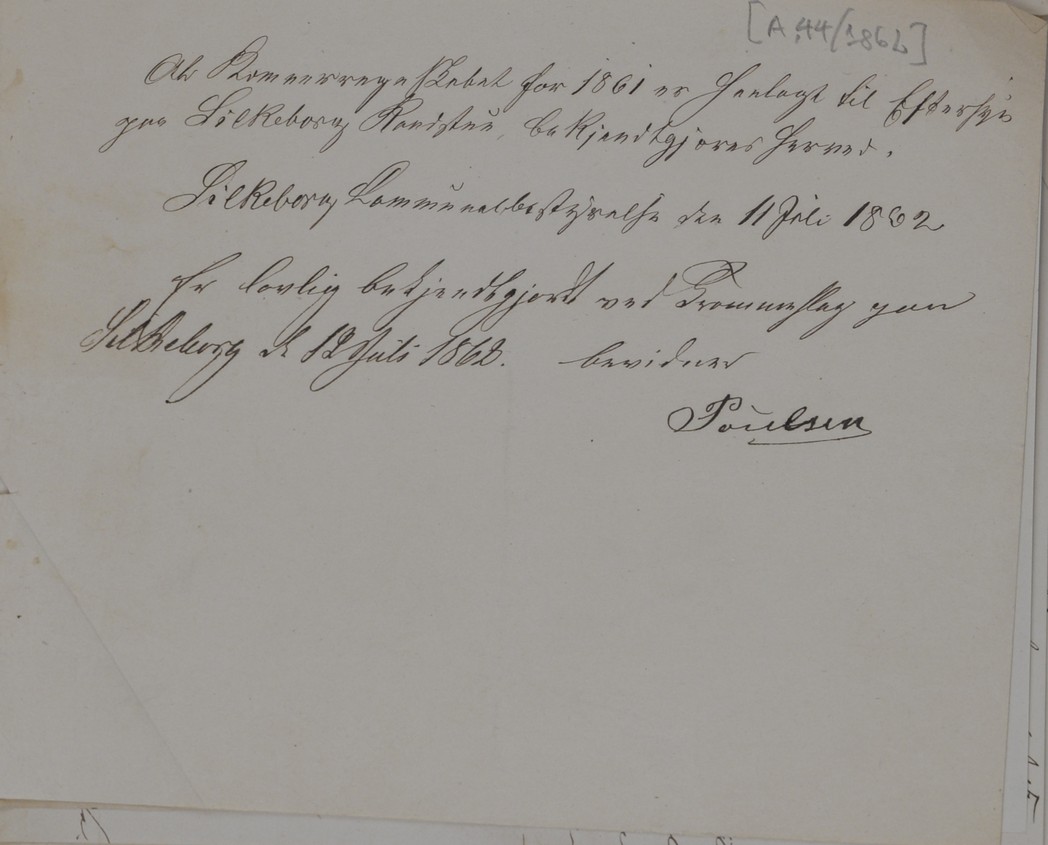 [A 44/1862]
At Kæmnerregnskabet for 1861 er henlagt til Eftersyn
paa Silkeborg Raadstue, bekjendtgjøres herved.
Silkeborg Communalbestyrelse den 11 Juli 1862
Er lovlig bekjendtgjordt ved Trommeslag paa
Silkeborg d 12 Juli 1862. bevidner
Poulsen